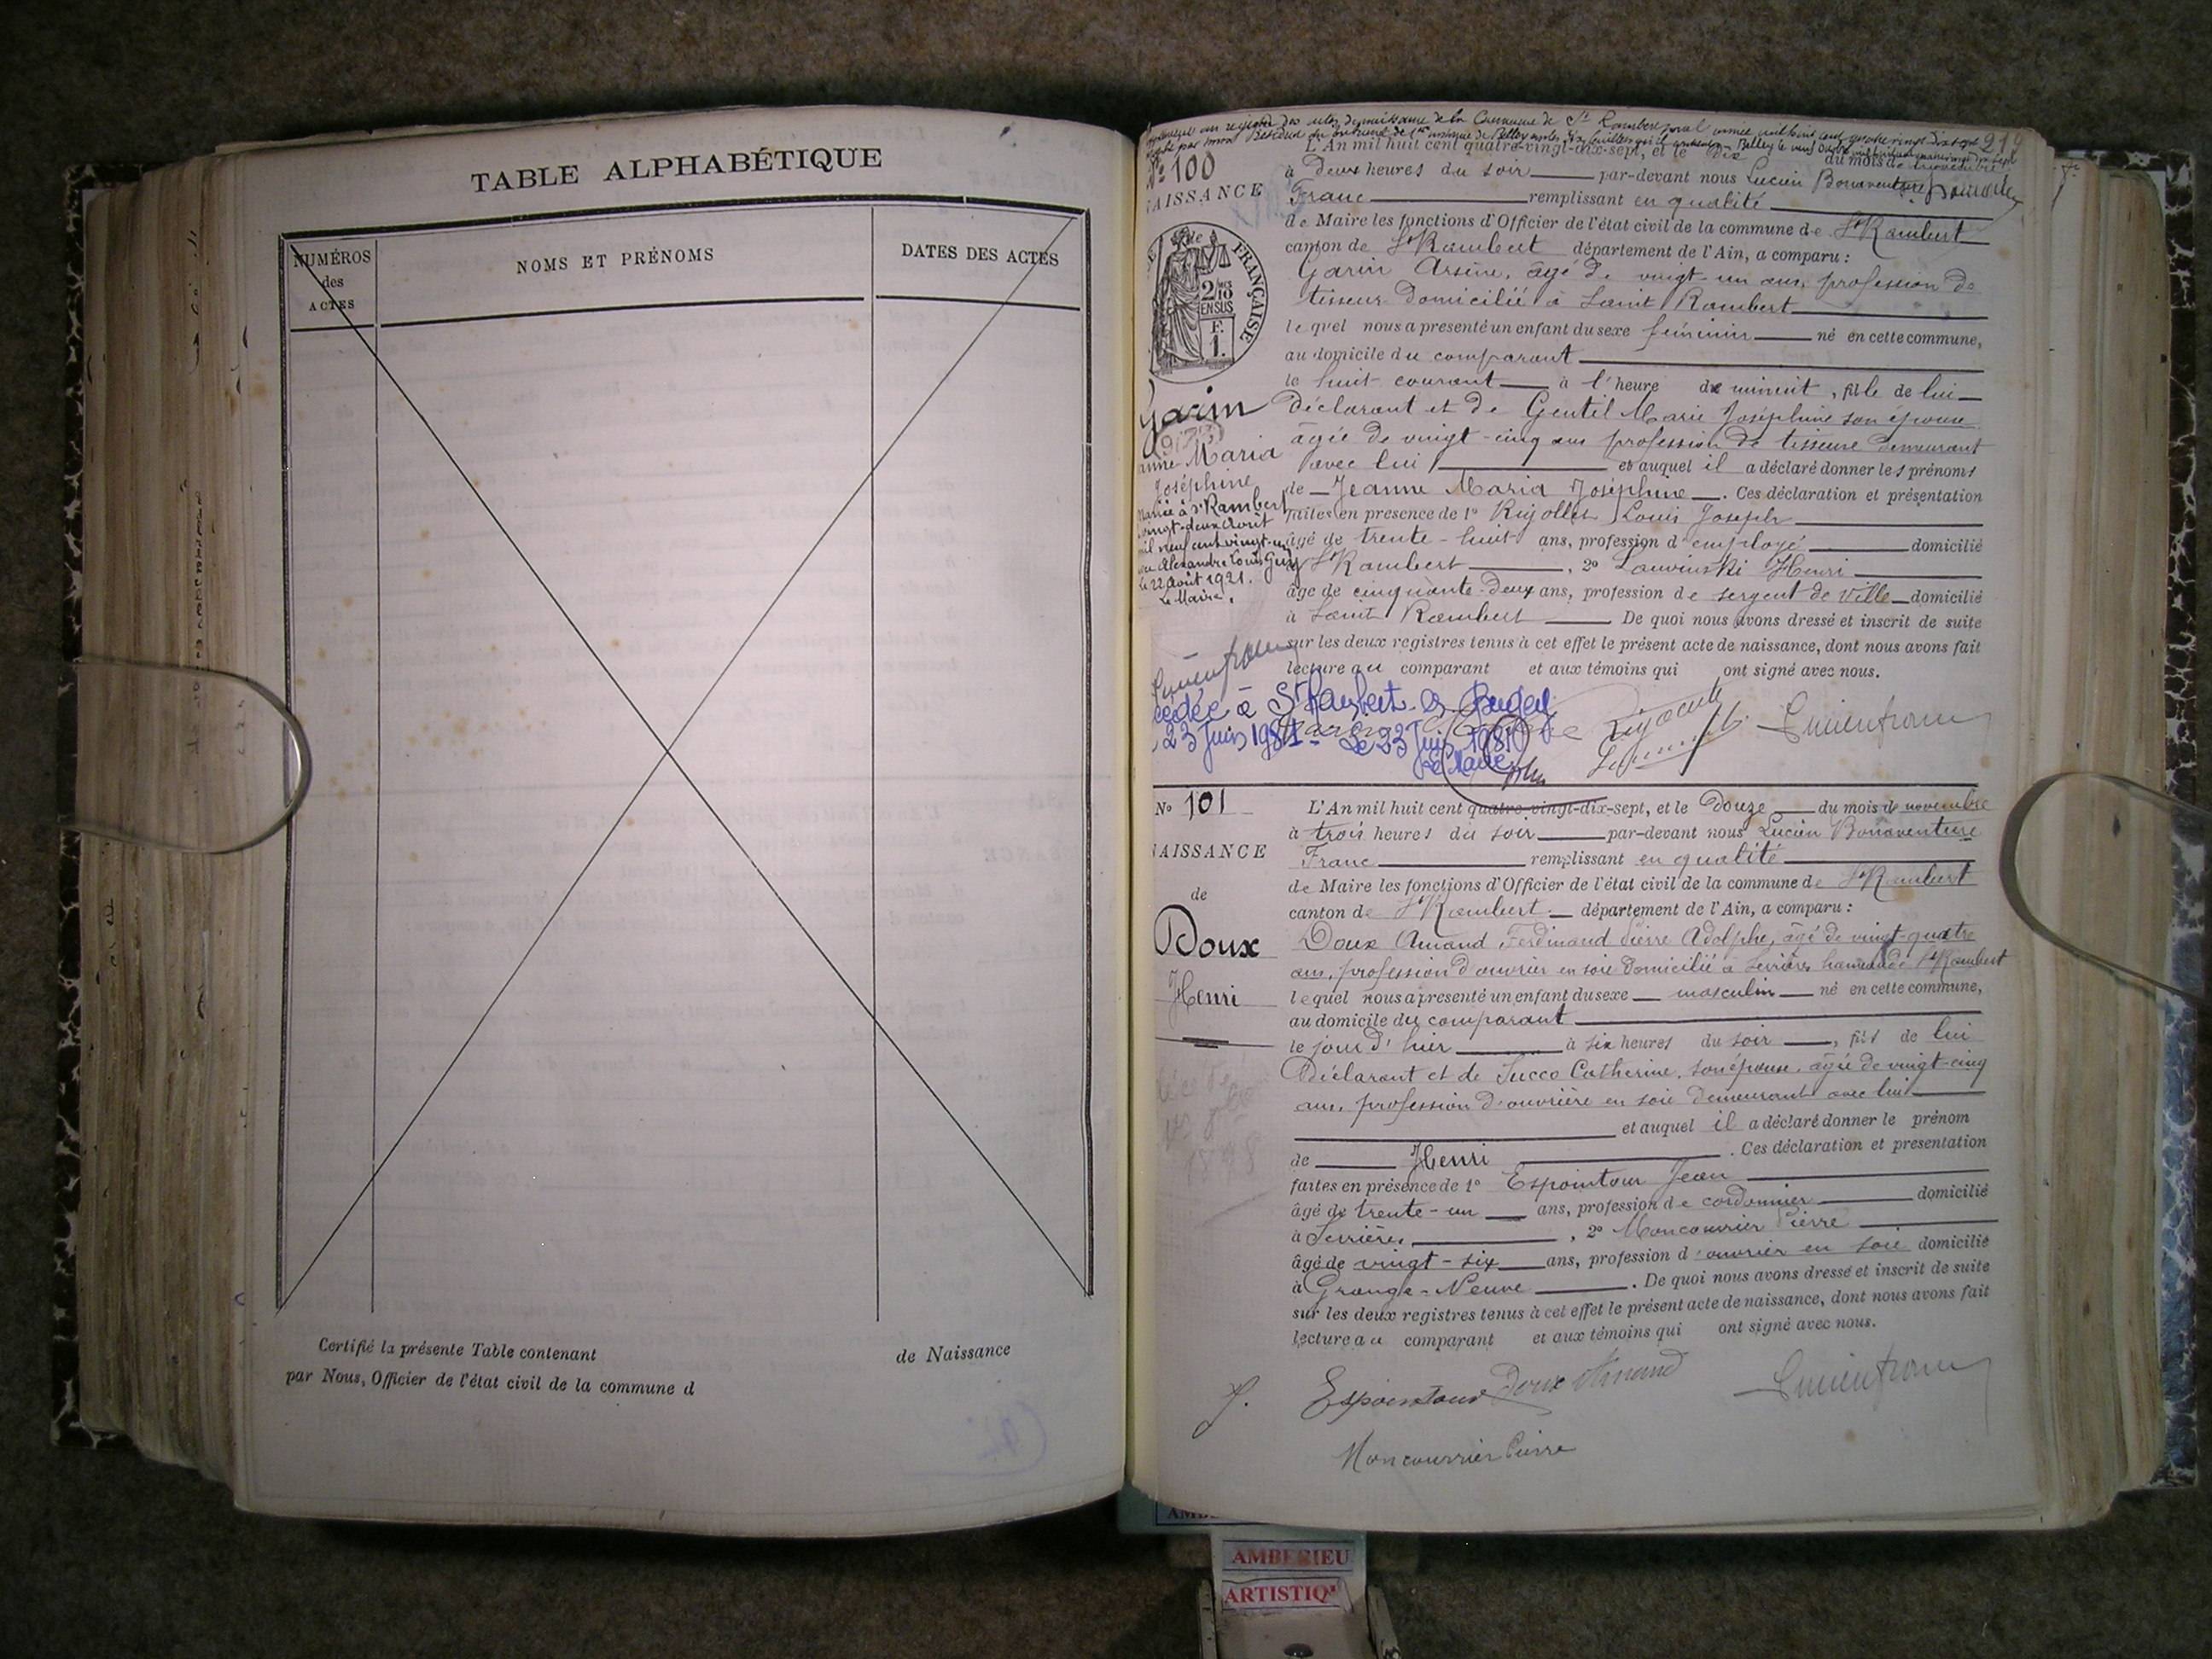 TABLE ALPHABÉTIQUE
NUMÉROS
des
ACTES
NOMS ET PRÉNOMS
DATES DES ACTES
Certifié la présente Table contenant de Naissance
par Nous, Officier de l'état civil de la commune d
No 100
NAISSANCE
de
FRANÇAISE
2 mes
10
EN SUS
F.
1.
Garin
Maria
Joséphine
Mariée à St Rambert
vingt-deux Août
mil neuf cent vingt-un
Alexandre Louis Guy
le 22 Août 1921.
Le Maire,
L'An mil huit cent quatre-vingt-dix-sept, et le dix du mois de novembre
à Deux heures du soir par-devant nous Lucien Bonaventure
Franc remplissant en qualité
de Maire les fonctions d'Officier de l'état civil de la commune de St Rambert
canton de St Rambert département de l'Ain, a comparu :
Garin Arsène, âgé de vingt-un ans, profession de
tisseur domicilié à Saint Rambert
lequel nous a presenté un enfant du sexe féminin né en cette commune,
au domicile du comparant
le huit courant à l'heure de minuit, fille de lui
déclarant et de Gentil Marie Joséphine son épouse
âgée de vingt-cinq ans profession de tisseuse demeurant
avec lui et auquel il a déclaré donner les prénoms
de Jeanne Maria Joséphine. Ces déclaration et présentation
faites en presence de 1º Rijollet Louis Joseph
âgé de trente-huit ans, profession d'employé domicilié
à St Rambert, 2º Lauvinski Henri
âge de cinquante-deux ans, profession de sergent de ville domicilié
à Saint Rambert. De quoi nous avons dressé et inscrit de suite
sur les deux registres tenus à cet effet le présent acte de naissance, dont nous avons fait
lecture au comparant et aux témoins qui ont signé avec nous.
Lucien franc
décédée à St Rambert en Bugey
le 23 Juin 1981 - Le 23 Juin 1981
Le Maire
Lucien franc
No 101
NAISSANCE
de
Doux
Henri
L'An mil huit cent quatre-vingt-dix-sept, et le Douze du mois de novembre
à trois heures du soir par-devant nous Lucien Bonaventure
Franc remplissant en qualité
de Maire les fonctions d'Officier de l'état civil de la commune de St Rambert
canton de St Rambert. département de l'Ain, a comparu :
Doux Amand Ferdinand Pierre Adolphe, âgé de vingt-quatre
ans, profession d'ouvrier en soie domicilié à Serrières hameau de St Rambert
lequel nous a presenté un enfant du sexe masculin né en cette commune,
au domicile du comparant
le jour d'hier à six heures du soir, fils de lui
Déclarant et de Succo Catherine, son épouse, âgée de vingt-cinq
ans, profession d'ouvrière en soie demeurant avec lui
et auquel il a déclaré donner le prénom
de Henri. Ces déclaration et presentation
faites en présence de 1º Espointour Jean
âgé de trente-un ans, profession de cordonnier domicilié
à Serrières, 2º Moncourrier Pierre
âgé de vingt-six ans, profession d'ouvrier en soie domicilié
à Grange-Neuve. De quoi nous avons dressé et inscrit de suite
sur les deux registres tenus à cet effet le présent acte de naissance, dont nous avons fait
lecture au comparant et aux témoins qui ont signé avec nous.
J. Espointour Doux Amand Lucien franc
Moncourrier Pierre
AMBERIEU
ARTISTIQ